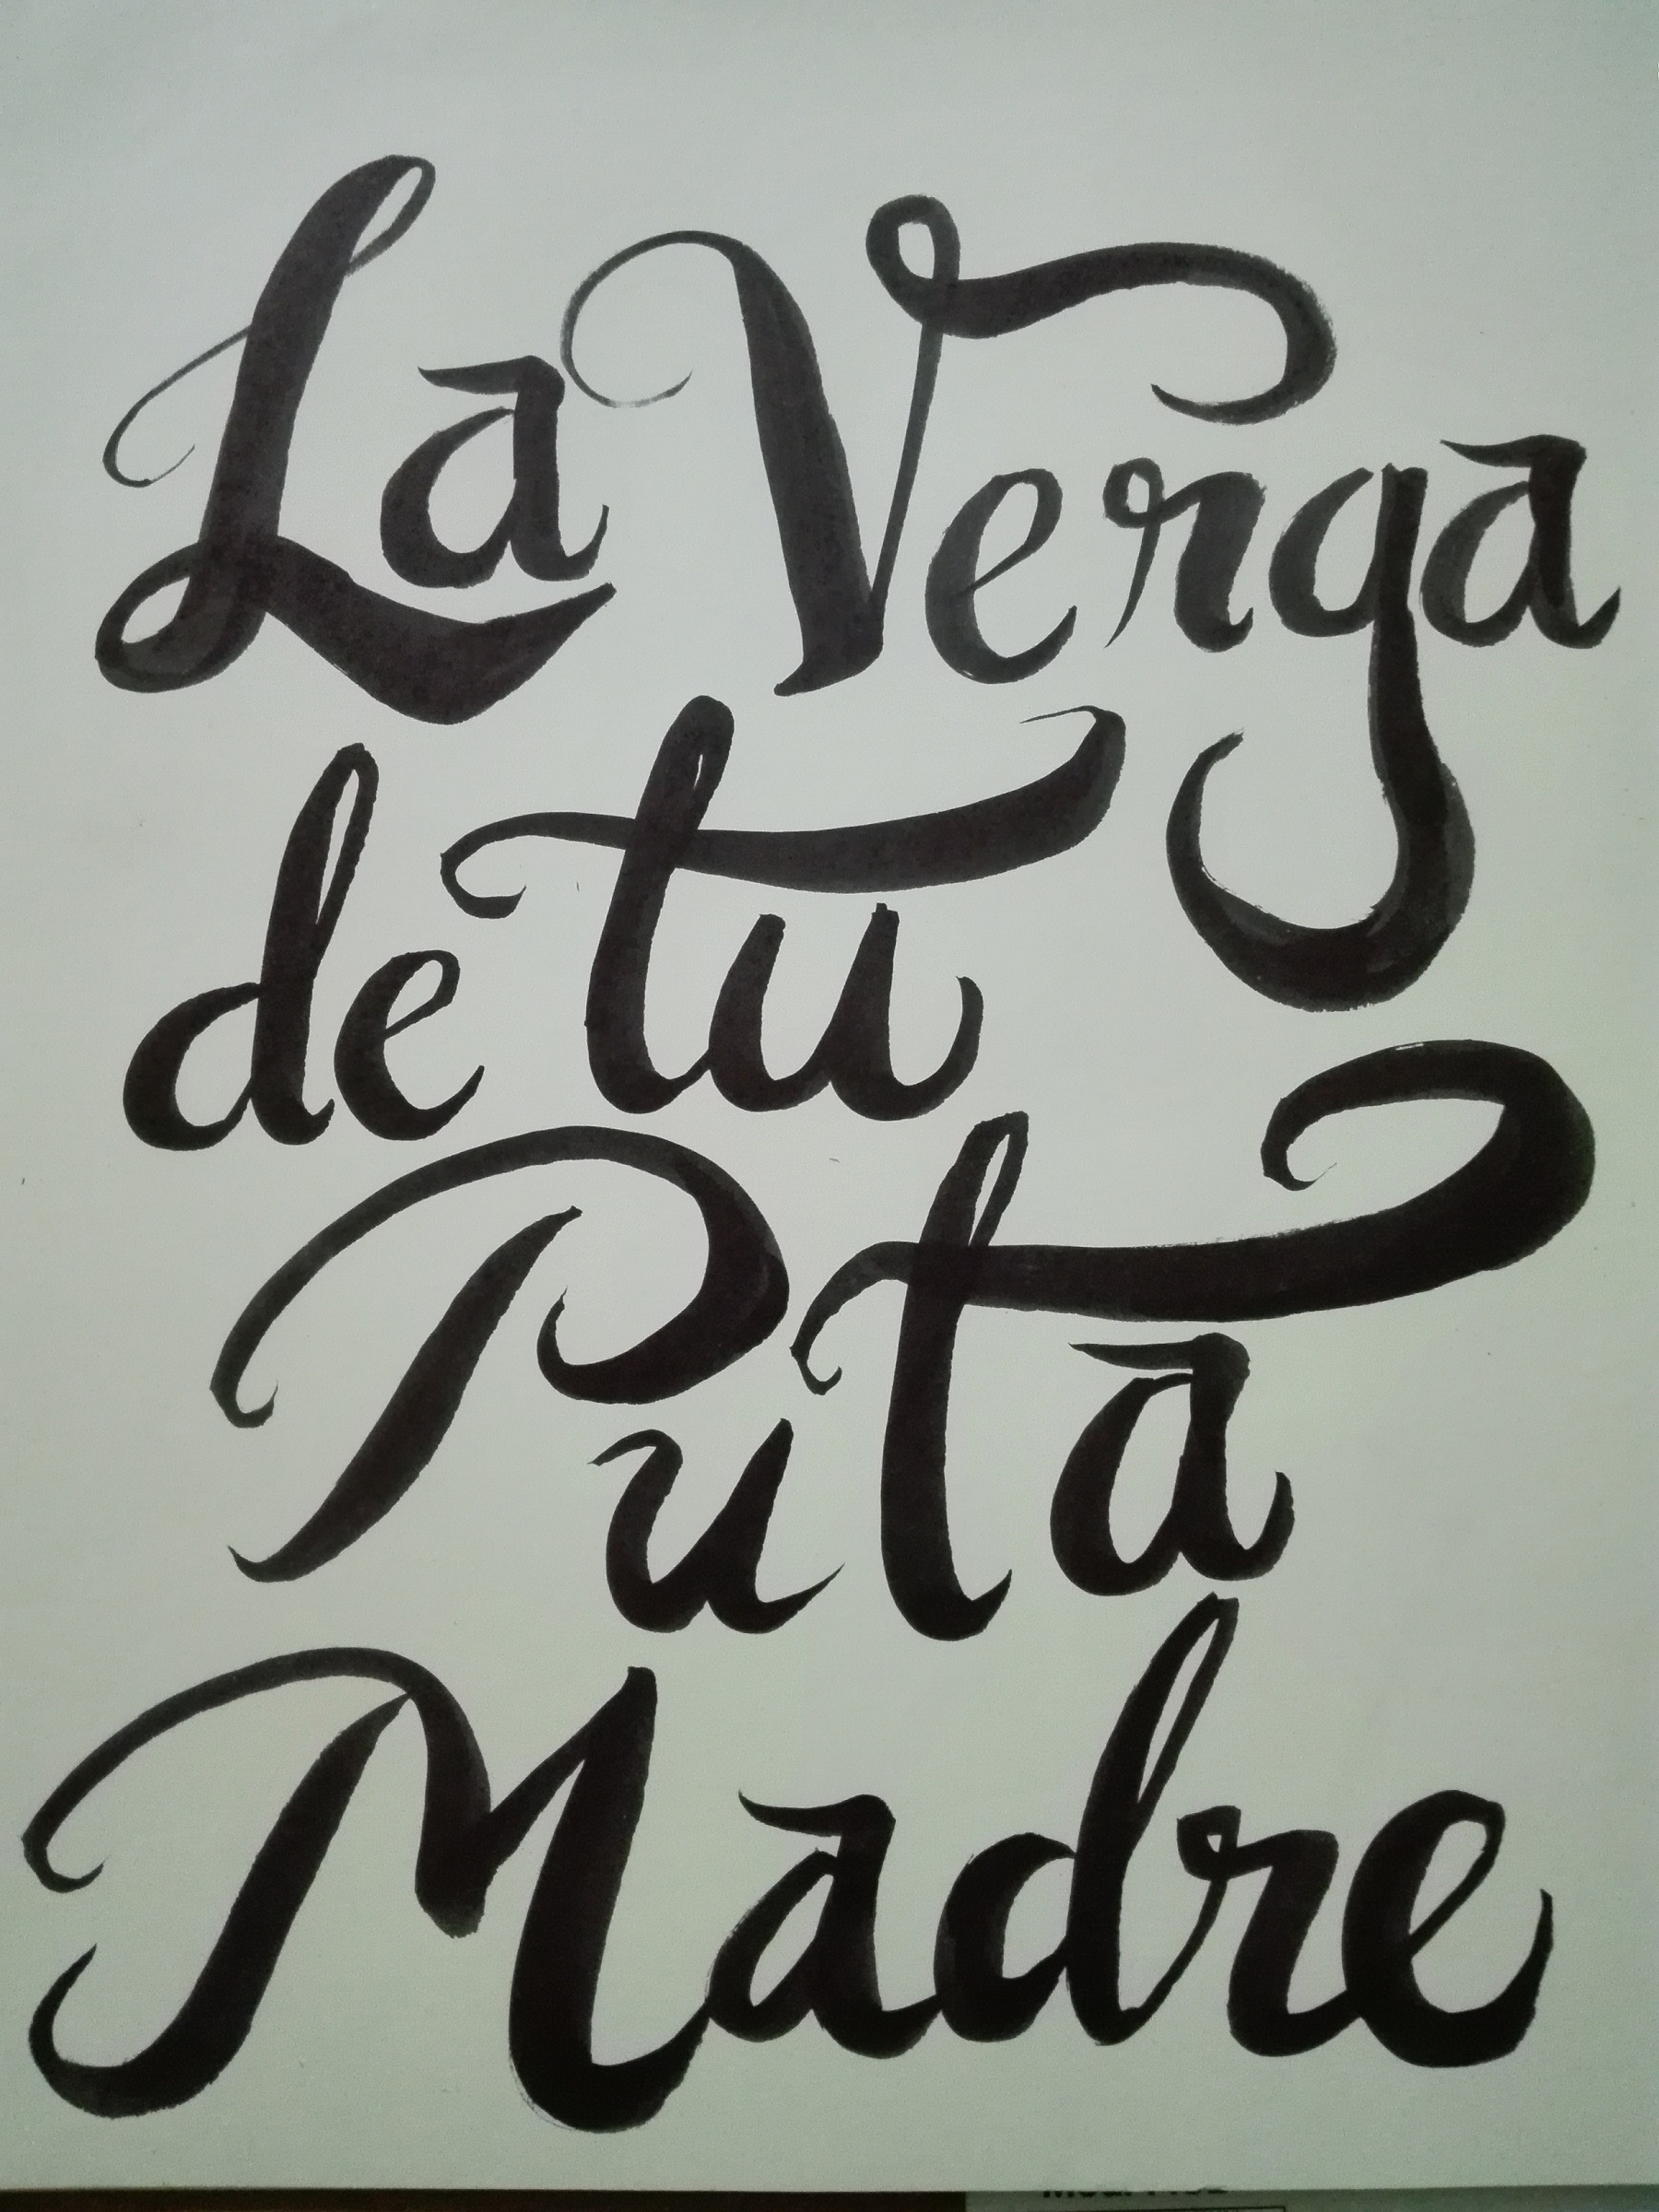 La Verga
de tu
Puta
Madre